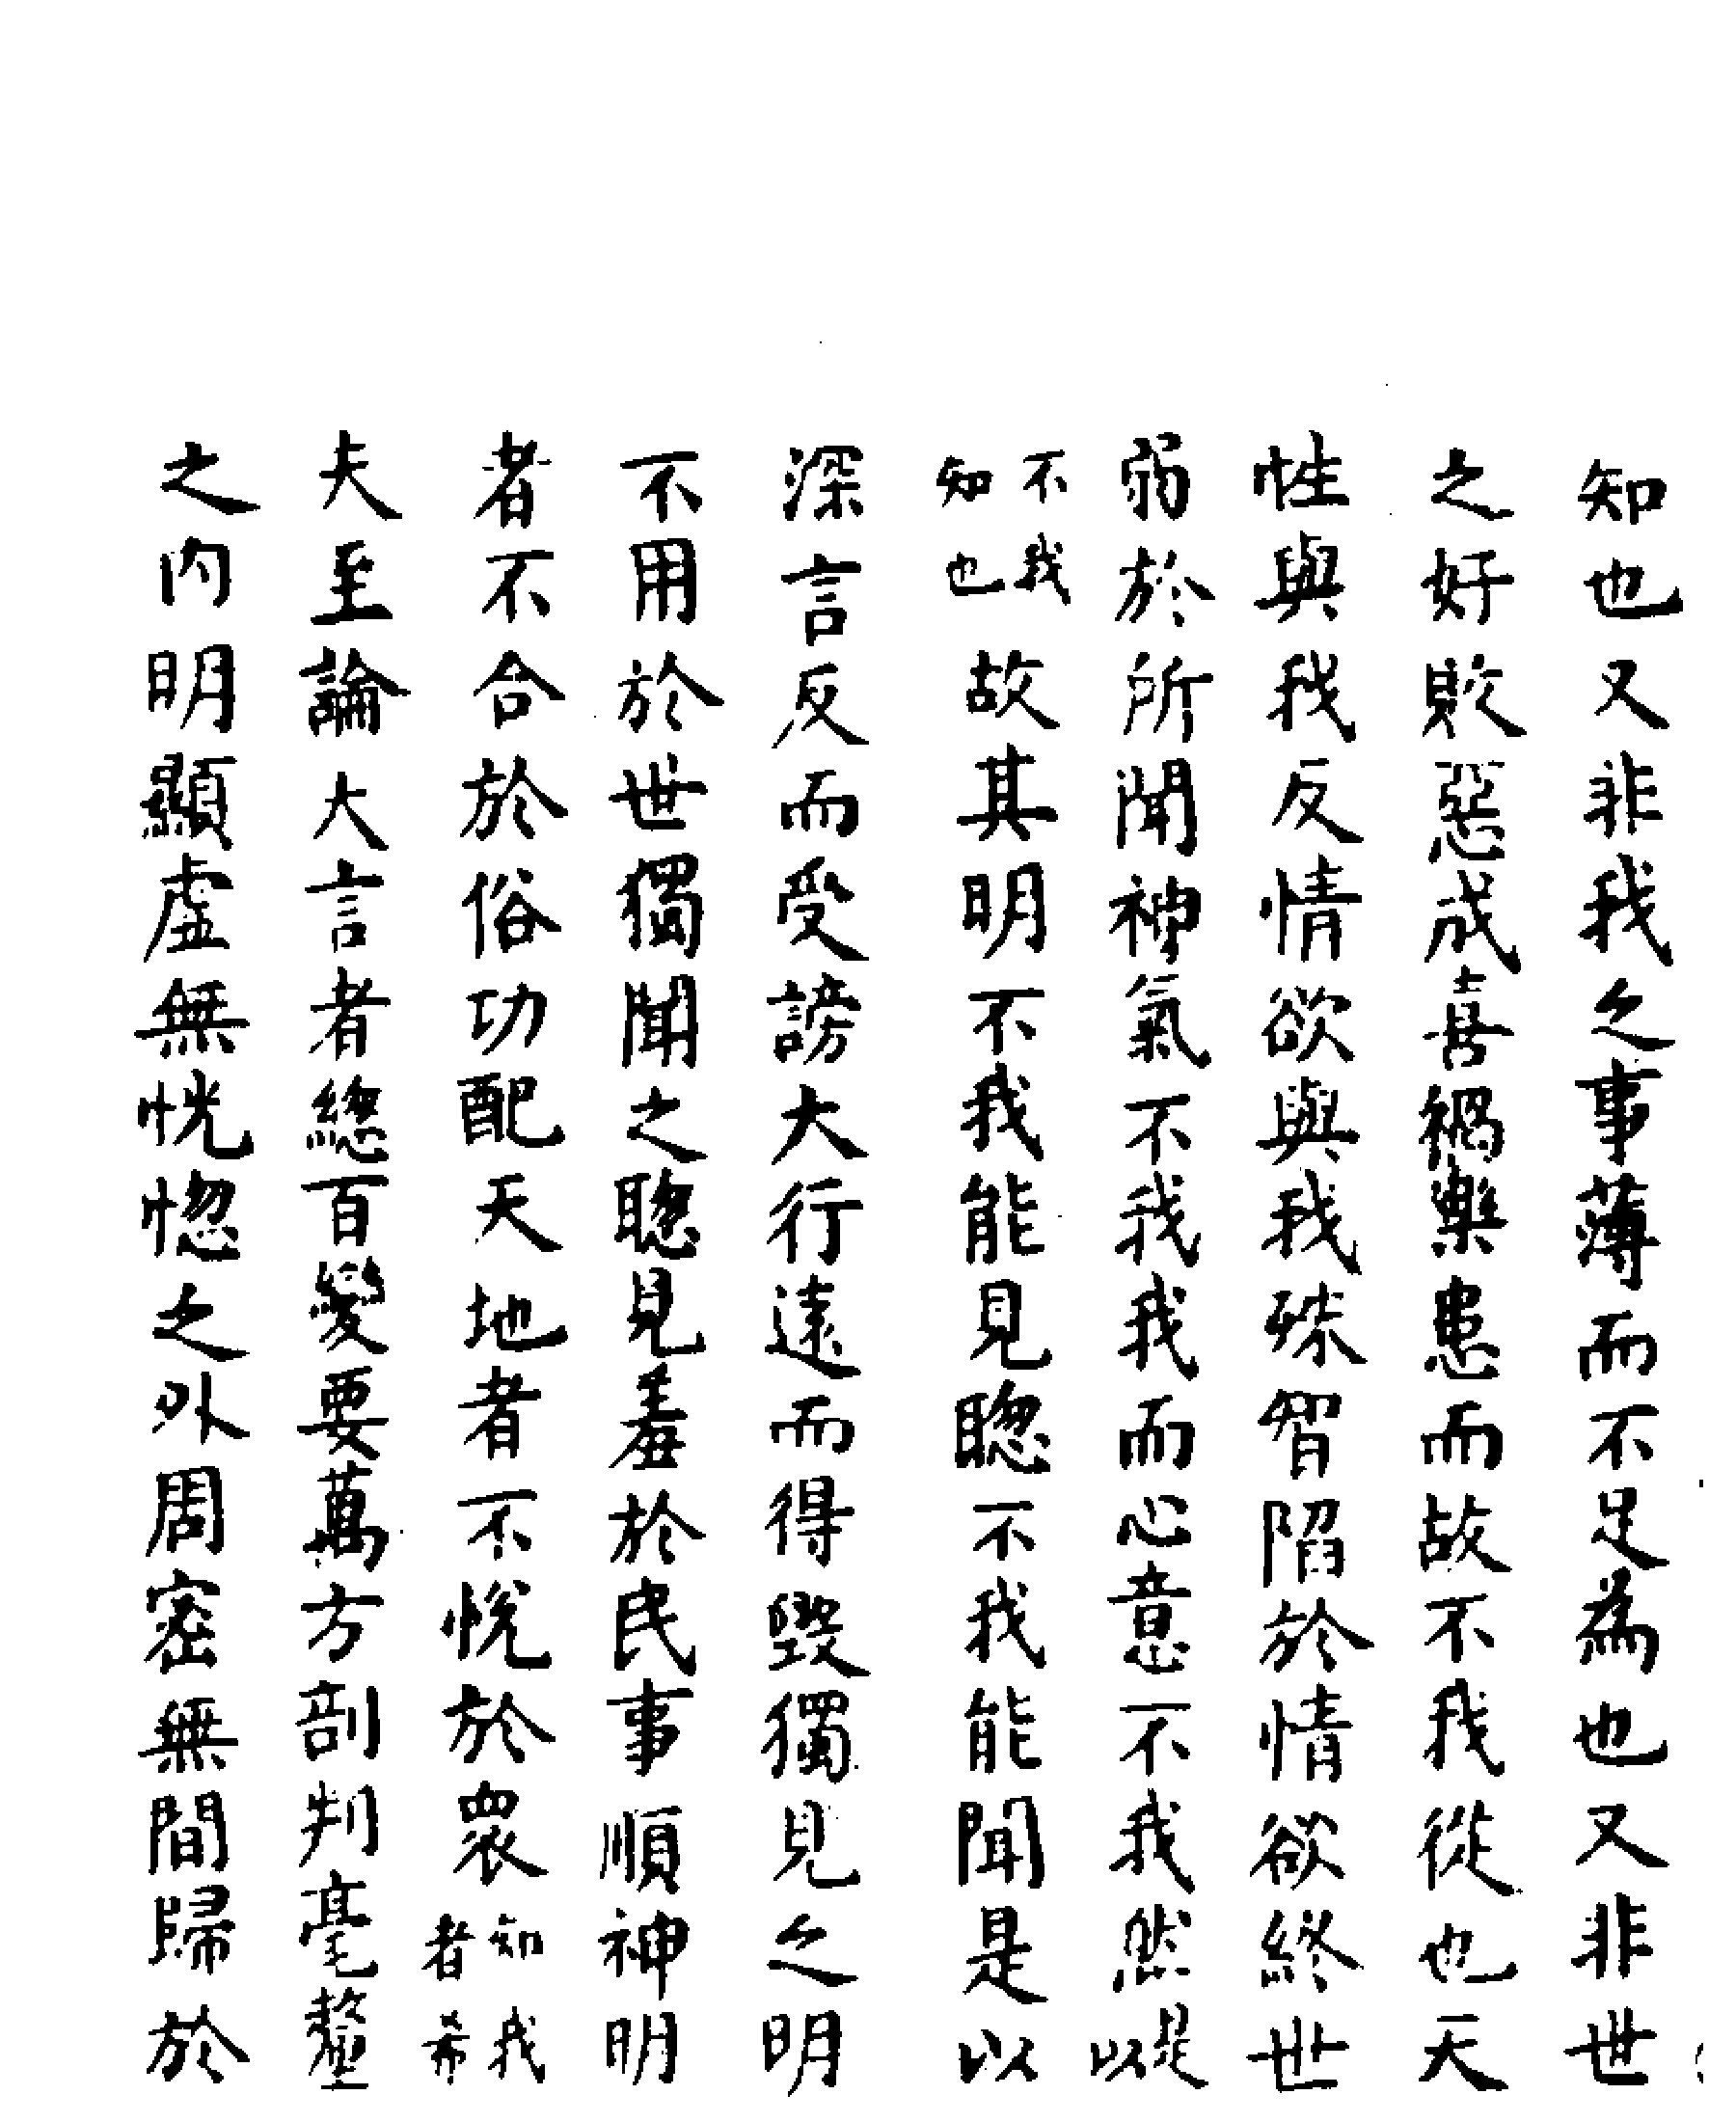 知也又非我之事薄而不足為也又非世
之好敗惡成喜禍樂患而故不我從也天
性與我反情欲與我殊智陷於情欲終世
弱於所聞神氣不我我而心意不我然是以
不我知也故其明不我能見聦不我能聞是以
深言反而受謗大行遠而得毀獨見之明
不用於世獨聞之聦見羞於民事順神明
者不合於俗功配天地者不悅於衆知我者希
夫至論大言者總百變要萬方剖判毫釐
之內明顯虛無恍惚之外周密無間歸於